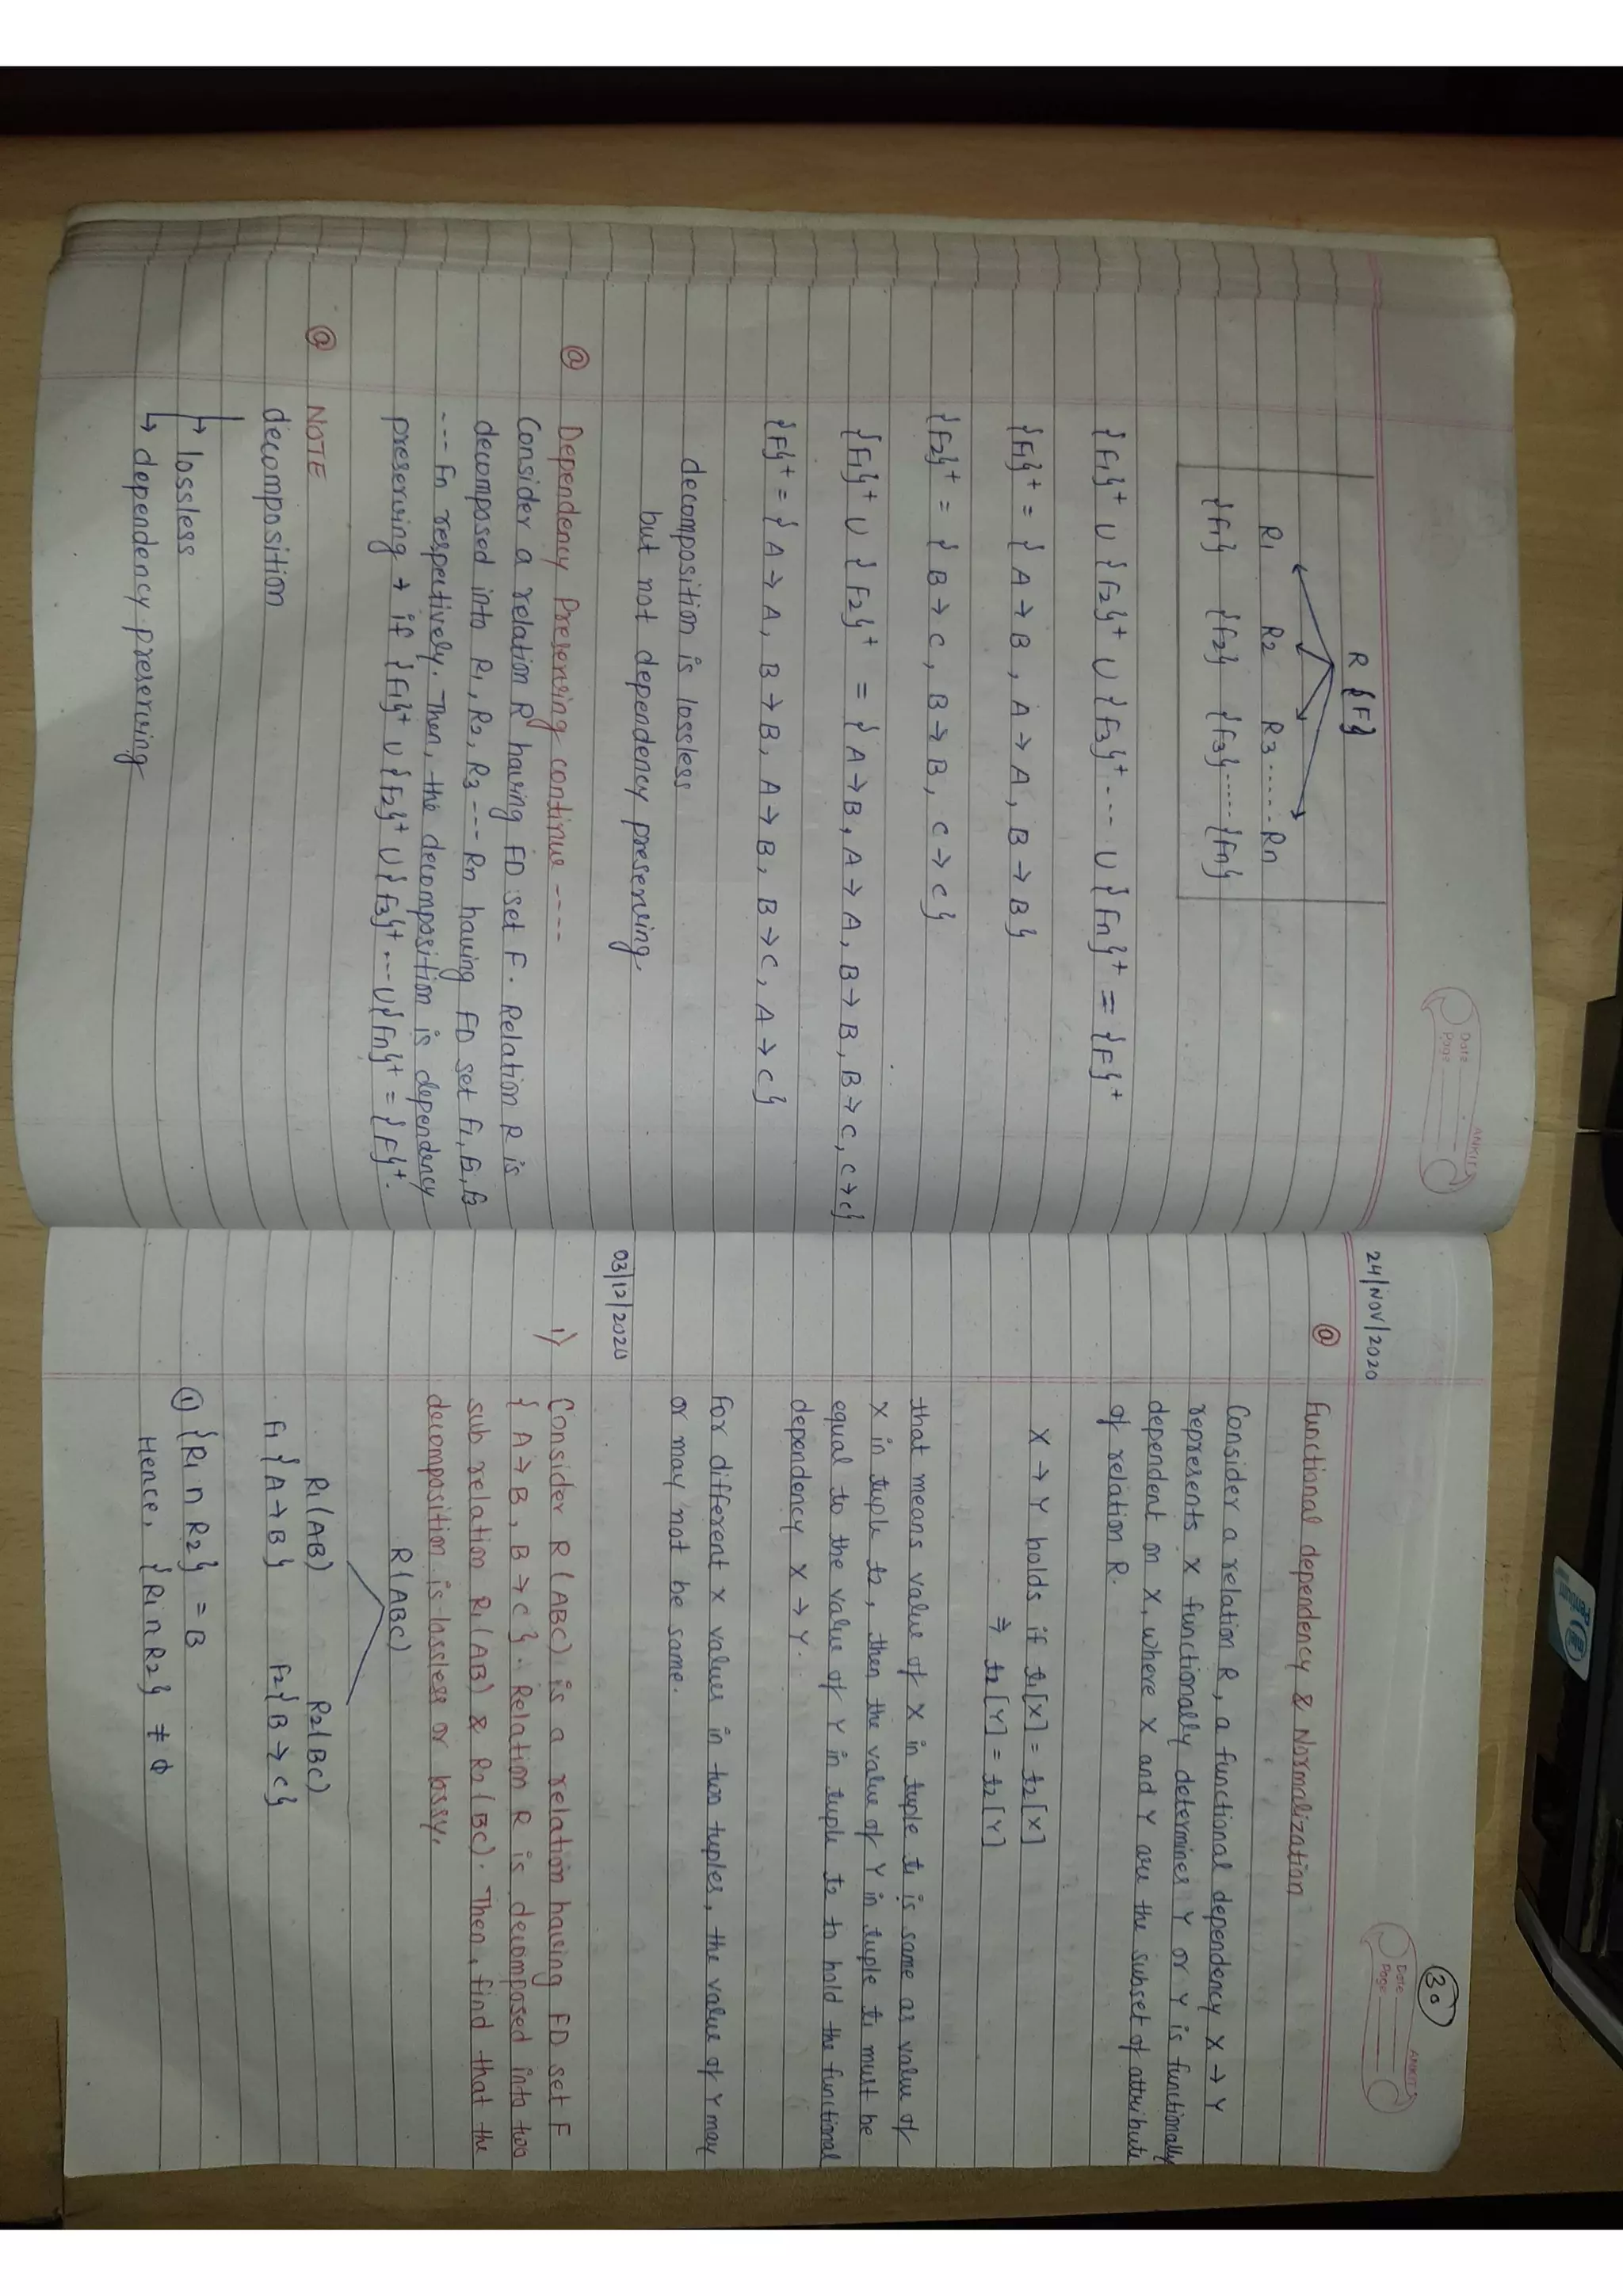 Date
Page
ANKIT
R {F}
R1 R2 R3 ...... Rn
{f1} {f2} {f3} ...... {fn}
{F1}+ U {F2}+ U {F3}+ --- U {Fn}+ = {F}+
{F1}+ = { A → B , A → A , B → B }
{F2}+ = { B → C , B → B , C → C }
{F1}+ U { F2}+ = { A → B , A → A , B → B , B → C , C → C}
{F}+ = { A → A , B → B , A → B , B → C , A → C }
decomposition is lossless
but not dependency preserving.
@ Dependency Preserving continue ----
Consider a relation R having FD set F. Relation R is
decomposed into R1, R2, R3 --- Rn having FD set F1, F2, F3
--- Fn respectively. Then, the decomposition is dependency
preserving → if {F1}+ U {F2}+ U {F3}+ --- U {Fn}+ = {F}+.
@ NOTE
decomposition
↳ lossless
↳ dependency preserving
30
Date
Page
ANKIT
24/NOV/2020
@ Functional dependency & Normalization
Consider a relation R, a functional dependency X → Y
represents X functionally determines Y or Y is functionally
dependent on X, where X and Y are the subset of attribute
of relation R.
X → Y holds if t1[X] = t2[X]
⇒ t2[Y] = t2[Y]
that means value of X in tuple t1 is same as value of
X in tuple t2, then the value of Y in tuple t1 must be
equal to the value of Y in tuple t2 to hold the functional
dependency X → Y.
For different X values in two tuples, the value of Y may
or may not be same.
03/12/2020
1) Consider R (ABC) is a relation having FD set F
{ A → B , B → C }. Relation R is decomposed into two
sub relation R1 (AB) & R2 (BC). Then, find that the
decomposition is lossless or lossy.
R(ABC)
R1(AB) R2(BC)
F1 {A → B} F2 {B → C}
① {R1 ∩ R2} = B
Hence, {R1 ∩ R2} ≠ ϕ